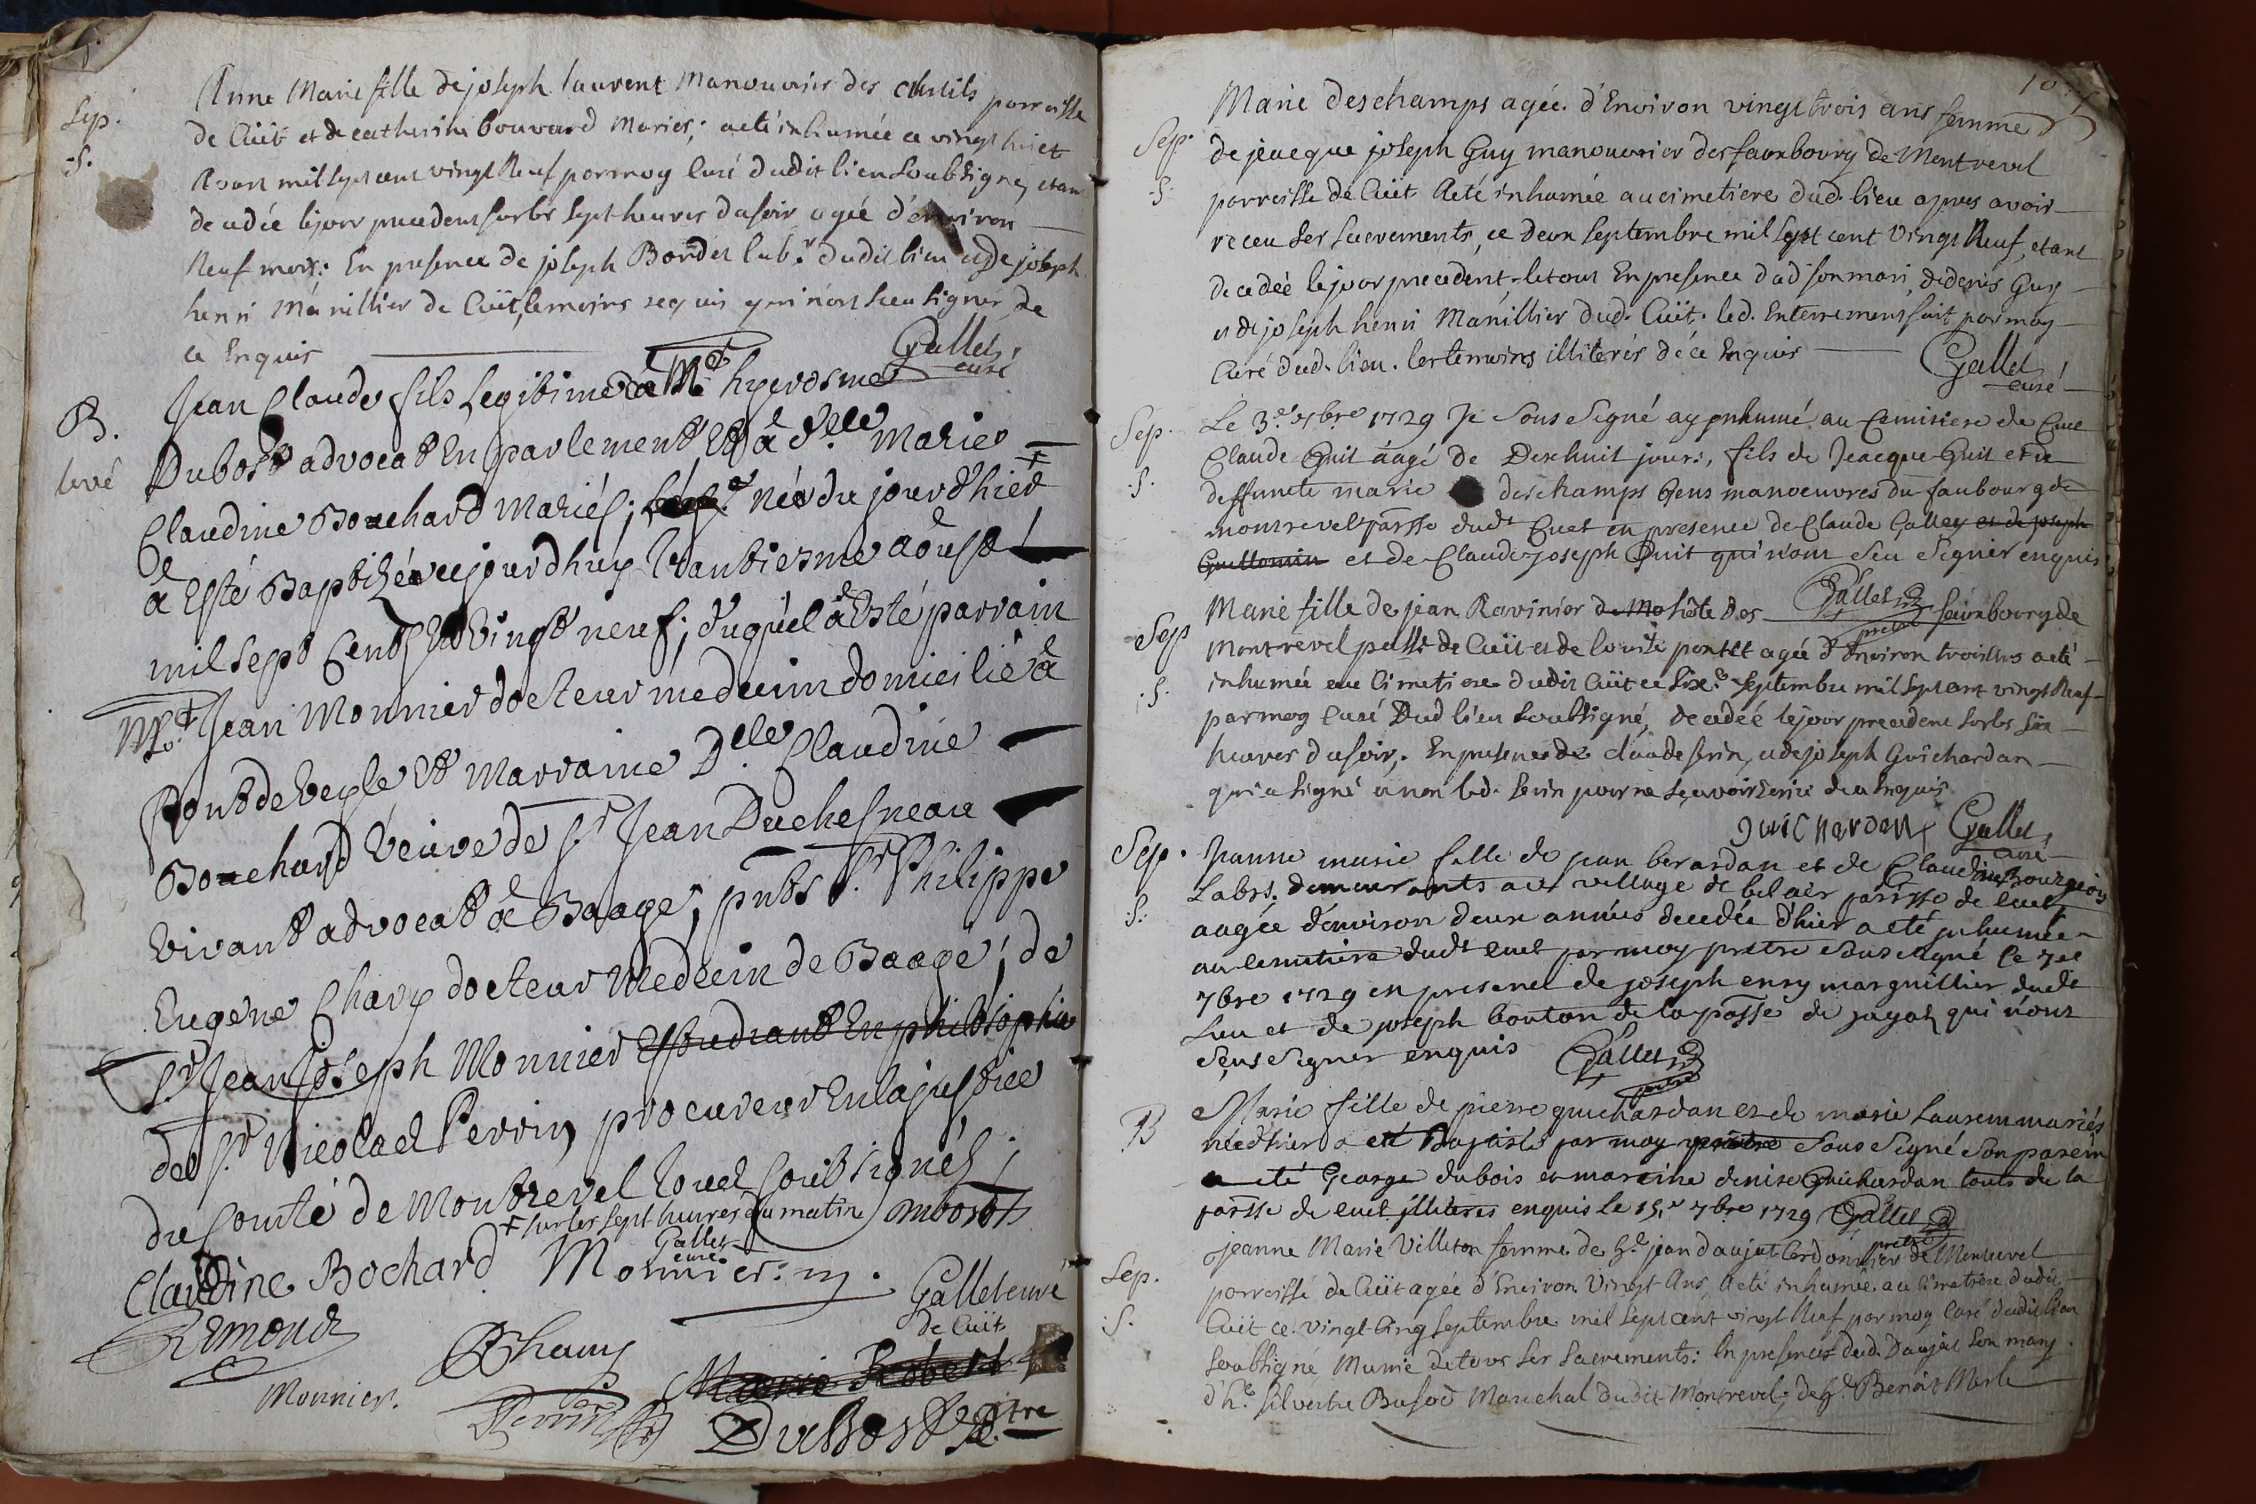 Sep.
.S.
Anne Marie fille de joseph laurent Manouvrier des parroisse
de Cüét et de catherine bouvard Mariés; a eté inhumée ce vingt huict
Aoust mil sept cent vingt Neuf par moy Curé dudit lieu Soubsigné, etant
decedée le jour precedent sur les sept heures du soir agée d'environ
Neuf mois: En presence de joseph Bordet lab.r dudit lieu et de joseph
henri Mánillier de Cüét, temoins requis qui n'ont sceu signer de
ce Enquis
Gallet
curé
B.
levé
Jean Claude fils Legitime à M.e hyerosme
Dubost advocat En parlement Et à d.lle Marie
Claudine Bouchard Mariés; née du jour d'hier +
à Esté Baptizé cejourd'huy trantiesme aoust
mil sept Cents Et Vingt neuf; duquel à Esté parrain
M.e Jean Monnier docteur medecin domicilié à
Pont de Veyle Et Marraine D.elle Claudine
Bouchard Veuve de S.r Jean Duchesneau
Vivant advocat à Baagé; pnts S.r Philippe
Eugene Chary docteur Medecin de Baagé; de
S.r Jean Joseph Monnier Estudiant En philosophie
de S.r Nicolad Perrin procureur En la justice
du Comté de Montrevel touts soubsignés;
+ sur les sept heures du matin
Gallet
curé
Dubost
Claudine Bochard Monnier. m.
Gallet curé
de Cüét
Remond
Chary
Monnier.
Perrin
Dubost P.tre
Sep.
.S.
Marie deschamps agée d'Environ vingt trois ans femme
de jacque joseph Guy manouvrier des fauxbourg de Montrevel
parroisse de Cüét a eté inhumée au cimetiere dud. lieu apres avoir
receu ses sacrements, ce deux septembre mil sept cent Vingt Neuf, etant
decedée le jour precedent. le tout En presence dud. son mari, de denis Guy
et de joseph henri Mánillier dud. Cüét. led. Enterrement fait par moy
Curé dud. lieu. les temoins illiterés de ce Enquis
Gallet
curé
Sep.
.S.
Le 3.e 7bre 1729 Je Sous Signé ay jnhumé au Cemitiere de Cuet
Claude Guit áagé de Dixhuit jours, fils de Jeacque Guit et de
deffuncte marie deschamps Gens manoeuvres du faubourg de
montrevel parsse dudt Cuet en presence de Claude Galley et de joseph
Guillomin et de Claude joseph Guit qui n'ont sceu signer enquis
Gallet
pretre
Sep
.S.
Marie fille de jean Ravinier de Mo hôte des fauxbourg de
Montrevel psse de Cüét et de agée d'Environ a eté
inhumée au Cimetiere dudit Cüét ce Six.e Septembre mil Sept cent vingt Neuf
par moy Curé Dud lieu Soubsigné, decedée le jour precedent sur les Six
heures du soir. En presence de claude serin, et de joseph Guichardan
qui a signé et non led. serin pour ne sçavoir Ecrire de ce Enquis
Guichardan Gallet
curé
Sep.
.S.
Janne marie fille de jean berardan et de Claudine Bourgeois
Labrs. demeurants au village de bel air parsse de Cuet
aagée d'environ deux années decedée d'hier a eté jnhumée
au cemitiere dudt Cuet par moy pretre sous signé le 7.e
7bre 1729 en presence de joseph enry marguillier dudt
lieu et de joseph bouton de la parsse de jayat qui n'ont
sçeu signer enquis
Gallet
pretre
B
Marie fille de pierre guichardan et de marie Laurem mariés
née d'hier a eté Baptisée par moy pretre Sous Signé son parein
a eté George dubois et mareine denise Guichardan touts de la
parsse de Cuet jlliteres enquis le 15.e 7bre 1729 Gallet
pretre
Sep.
.S.
Jeanne Marie Villeton femme de h.e jean daujat Cordonnier de Montrevel
parroisse de Cüét agée d'Environ Vingt Ans, a eté inhumée au Cimetiere dudit
Cüét ce vingt Cinq Septembre mil sept cent vingt Neuf par moy Curé dudit lieu
Soubsigné Munie de tous ses sacrements: En presence dud. Daujat son mary
d'h.e silvestre Bufod Marechal dudit Montrevel; de h.e Benoit Merle